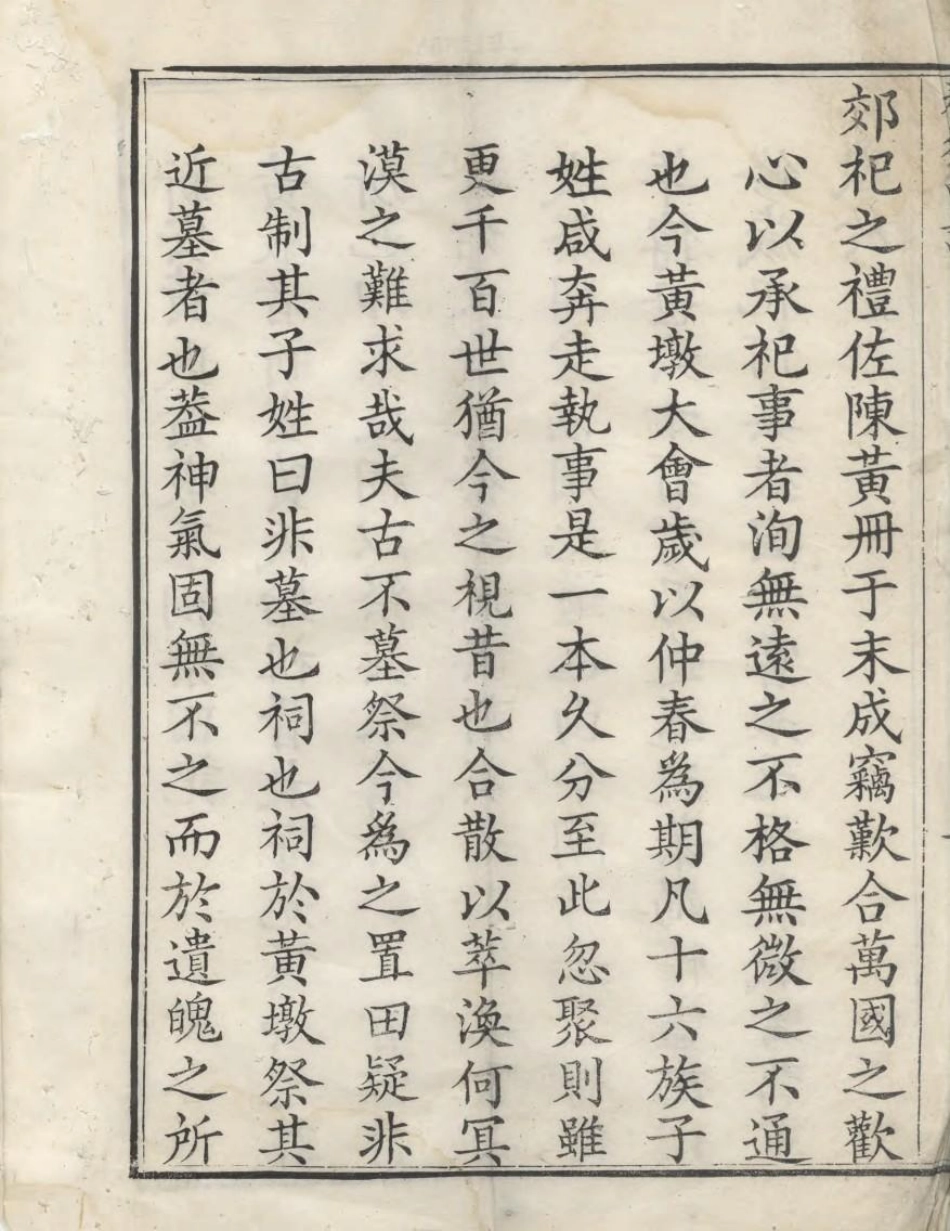 郊祀之禮佐陳黃冊于末成竊歎合萬國之歡
心以承祀事者洵無遠之不格無微之不通
也今黃墩大會歲以仲春為期凡十六族子
姓咸奔走執事是一本久分至此忽聚則雖
更千百世猶今之視昔也合散以萃渙何冥
漠之難求哉夫古不墓祭今為之置田疑非
古制其子姓曰非墓也祠也祠於黃墩祭其
近墓者也葢神氣固無不之而於遺魄之所